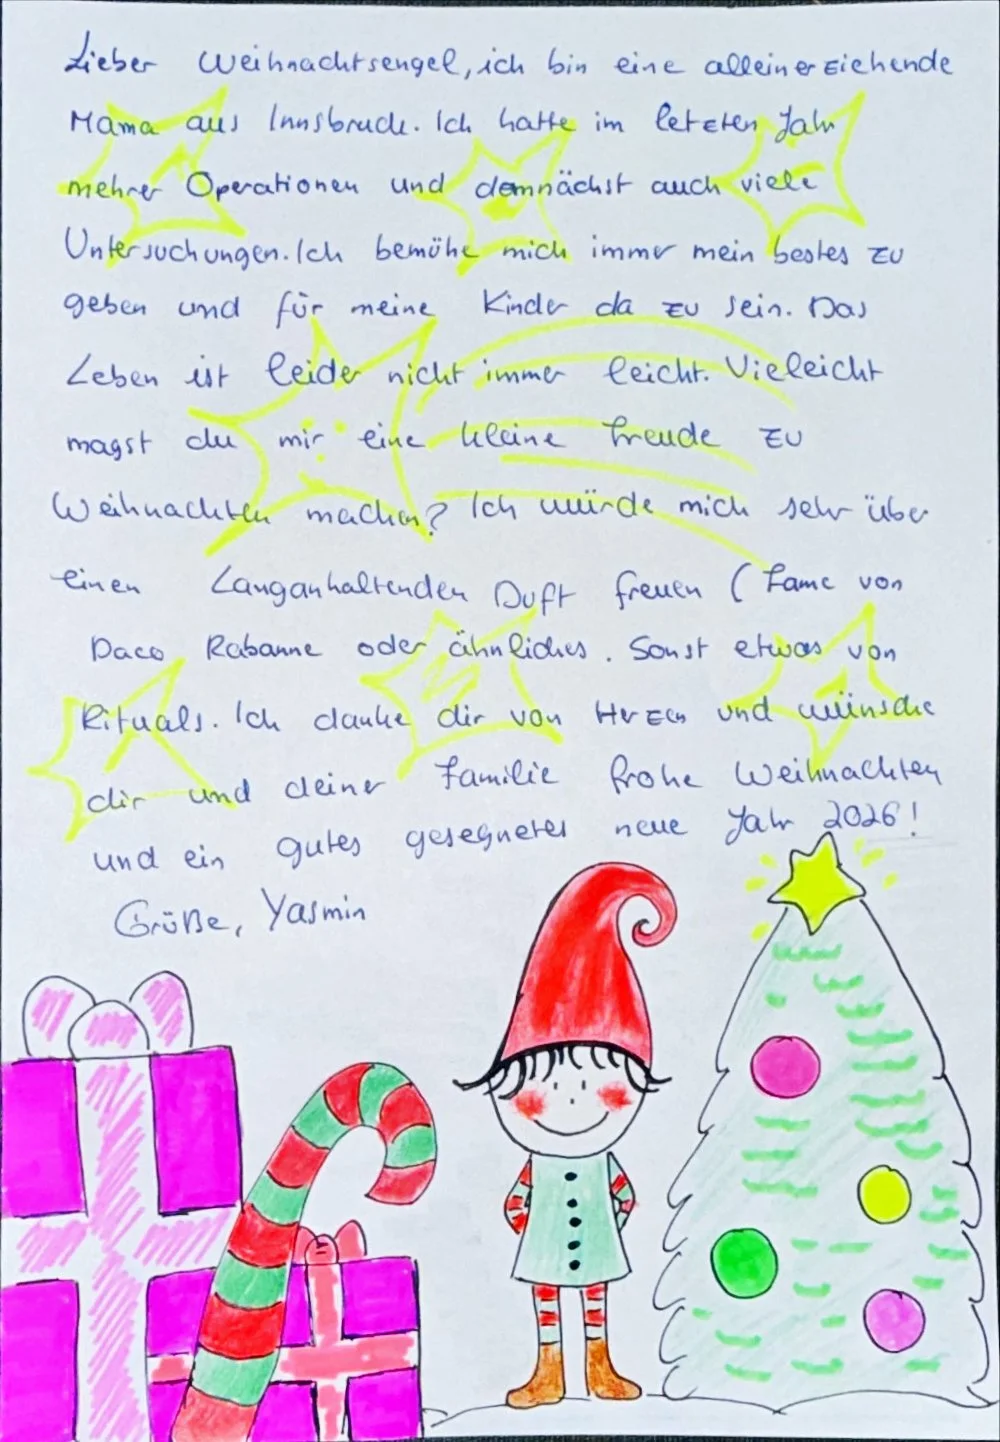 Lieber Weihnachtsengel, ich bin eine alleinerziehende
Mama aus Innsbruck. Ich hatte im letzten Jahr
mehrer Operationen und demnächst auch viele
Untersuchungen. Ich bemühe mich immer mein bestes zu
geben und für meine Kinder da zu sein. Das
Leben ist leider nicht immer leicht. Vielleicht
magst du mir eine kleine Freude zu
Weihnachten machen? Ich würde mich sehr über
einen Langanhaltenden Duft freuen (Fame von
Paco Rabanne oder ähnliches. Sonst etwas von
Rituals. Ich danke dir von Herzen und wünsche
dir und deiner Familie frohe Weihnachten
und ein gutes gesegnetes neue Jahr 2026!
Grüße, Yasmin